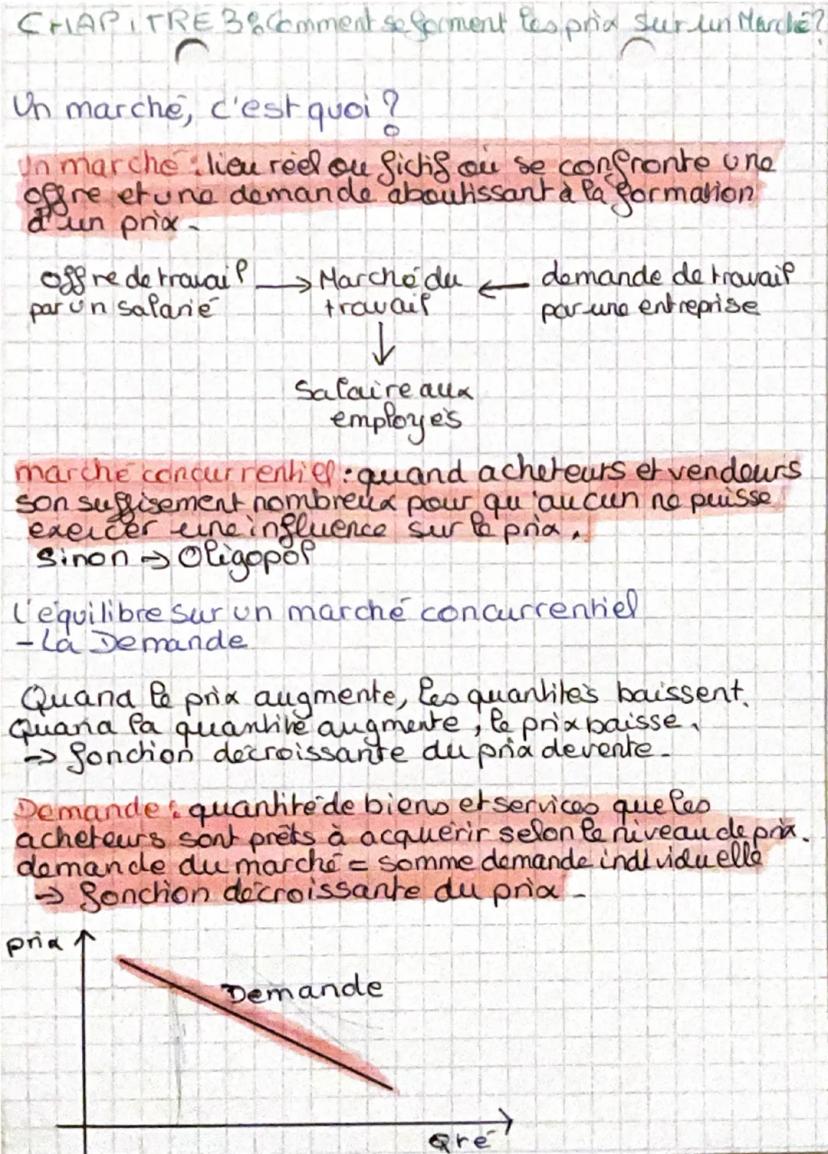 CHAPITRE 3 : Comment se forment les prix sur un Marché ?
Un marché, c'est quoi ?
Un marché : lieu réel ou fictif où se confronte une
offre et une demande aboutissant à la formation
d'un prix.
offre de travail → Marché du ← demande de travail
par un salarié travail par une entreprise
↓
Salaire aux
employés
marché concurrentiel : quand acheteurs et vendeurs
son suffisement nombreux pour qu'aucun ne puisse
exercer une influence sur le prix.
Sinon → Oligopol
L'équilibre sur un marché concurrentiel
- La Demande
Quand le prix augmente, les quantités baissent.
Quand la quantité augmente, le prix baisse.
→ fonction décroissante du prix de vente.
Demande : quantité de biens et services que les
acheteurs sont prêts à acquérir selon le niveau de prix.
demande du marché = somme demande individuelle
→ fonction décroissante du prix.
prix
Demande
Qté